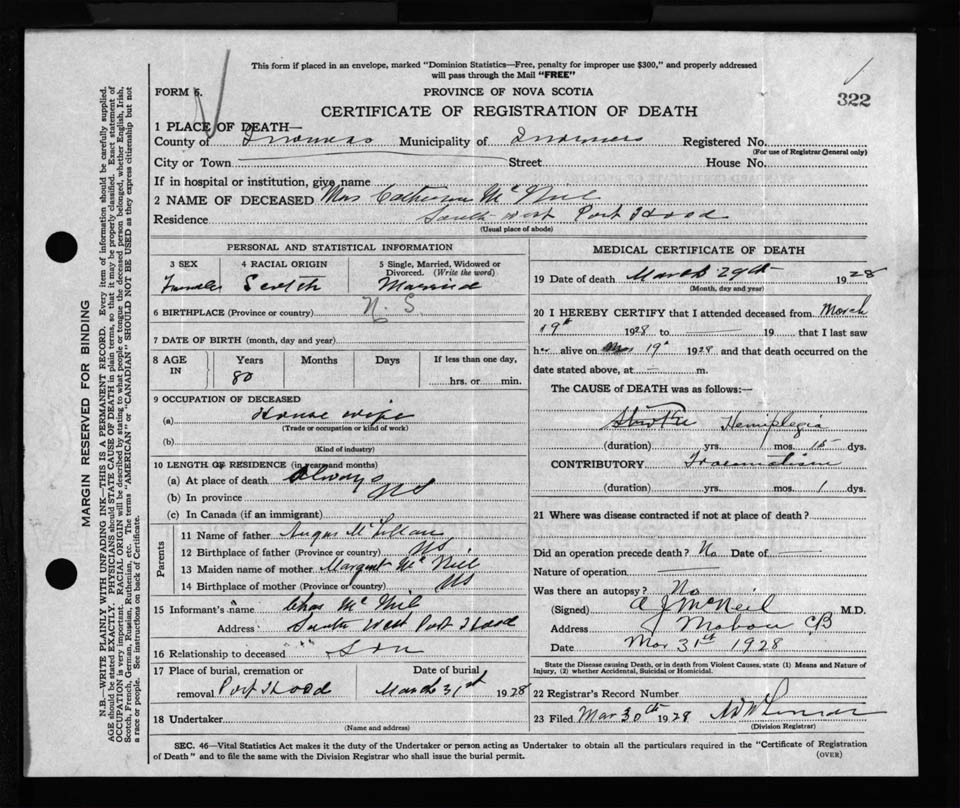 This form if placed in an envelope, marked "Dominion Statistics—Free, penalty for improper use $300," and properly addressed
will pass through the Mail "FREE"
FORM 6.
PROVINCE OF NOVA SCOTIA
322
CERTIFICATE OF REGISTRATION OF DEATH
1 PLACE OF DEATH—
County of Inverness Municipality of Inverness Registered No.
(For use of Registrar General only)
City or Town Street House No.
If in hospital or institution, give name
2 NAME OF DECEASED Mrs Catherine McNeil
Residence South West Port Hood
(Usual place of abode)
PERSONAL AND STATISTICAL INFORMATION
3 SEX 4 RACIAL ORIGIN 5 Single, Married, Widowed or
Divorced. (Write the word)
Female Scotch Married
6 BIRTHPLACE (Province or country) N. S.
7 DATE OF BIRTH (month, day and year)
8 AGE IN Years Months Days If less than one day,
80 hrs. or min.
9 OCCUPATION OF DECEASED
(a) House wife
(Trade or occupation or kind of work)
(b)
(Kind of industry)
10 LENGTH OF RESIDENCE (in years and months)
(a) At place of death always
(b) In province NS
(c) In Canada (if an immigrant)
Parents
11 Name of father Angus
12 Birthplace of father (Province or country) NS
13 Maiden name of mother Margaret McNeil
14 Birthplace of mother (Province or country) NS
15 Informant's name Chas McNeil
Address South West Port Hood
16 Relationship to deceased " " Son
17 Place of burial, cremation or Date of burial
removal Port Hood March 31st 1928
18 Undertaker
(Name and address)
MEDICAL CERTIFICATE OF DEATH
19 Date of death March 29th 1928
(Month, day and year)
20 I HEREBY CERTIFY that I attended deceased from March
19th 1928 to 19 that I last saw
her alive on Mar 19th 1928 and that death occurred on the
date stated above, at — m.
The CAUSE of DEATH was as follows:—
Hemiplegia
(duration) yrs. mos. 15 dys.
CONTRIBUTORY Traumatism
(duration) yrs. mos. 1 dys.
21 Where was disease contracted if not at place of death?
Did an operation precede death? No Date of
Nature of operation
Was there an autopsy? No
(Signed) A J McNeil M.D.
Address Mabou CB
Date Mar 31st 1928
State the Disease causing Death, or in death from Violent Causes, state (1) Means and Nature of
Injury, (2) whether Accidental, Suicidal or Homicidal.
22 Registrar's Record Number
23 Filed Mar 30th 1928
(Division Registrar)
SEC. 46—Vital Statistics Act makes it the duty of the Undertaker or person acting as Undertaker to obtain all the particulars required in the "Certificate of Registration
of Death" and to file the same with the Division Registrar who shall issue the burial permit.
(OVER)
MARGIN RESERVED FOR BINDING
N.B.—WRITE PLAINLY WITH UNFADING INK—THIS IS A PERMANENT RECORD. Every item of information should be carefully supplied.
AGE should be stated EXACTLY. PHYSICIANS should STATE CAUSE OF DEATH in plain terms, so that it may be properly classified. Exact statement of
OCCUPATION is very important. RACIAL ORIGIN will be described by stating to what people or tongue the deceased person belonged, whether English, Irish,
Scotch, French, German, Russian, Ruthenian, etc. The terms "AMERICAN" or "CANADIAN" SHOULD NOT BE USED as they express citizenship but not
a race or people. See instructions on back of Certificate.